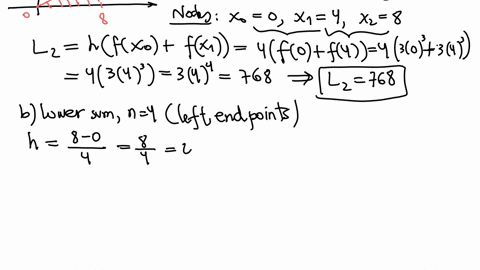 0 8
Nodes: x₀ = 0, x₁ = 4, x₂ = 8
L₂ = h(f(x₀) + f(x₁)) = 4(f(0) + f(4)) = 4(3(0)³ + 3(4)³)
= 4(3(4)³) = 3(4)⁴ = 768 ⟹ L₂ = 768
b) lower sum, n=4 (left endpoints)
h = (8-0)/4 = 8/4 =